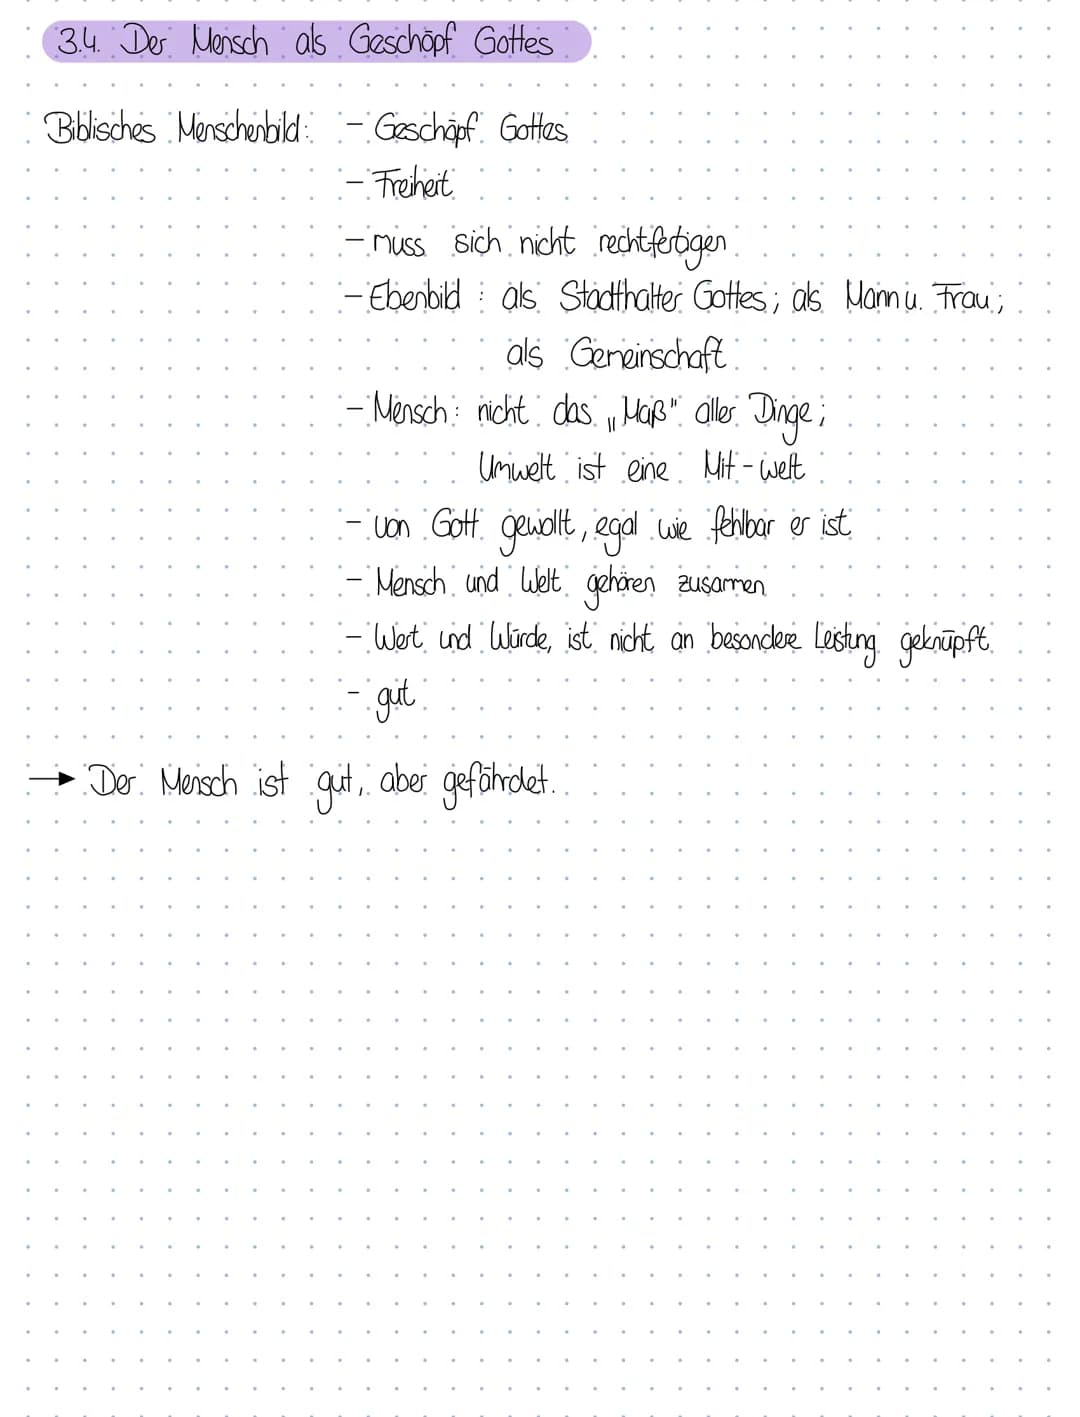 3.4. Der Mensch als Geschöpf Gottes
Biblisches Menschenbild: - Geschöpf Gottes
- Freiheit
- muss sich nicht rechtfertigen
- Ebenbild : als Stadthalter Gottes; als Mann u. Frau;
als Gemeinschaft
- Mensch: nicht das „Maß" aller Dinge;
Umwelt ist eine Mit-welt
- von Gott gewollt, egal wie fehlbar er ist
- Mensch und Welt gehören zusammen
- Wert und Würde, ist nicht an besondere Leistung geknüpft
- gut
→ Der Mensch ist gut, aber gefährdet.